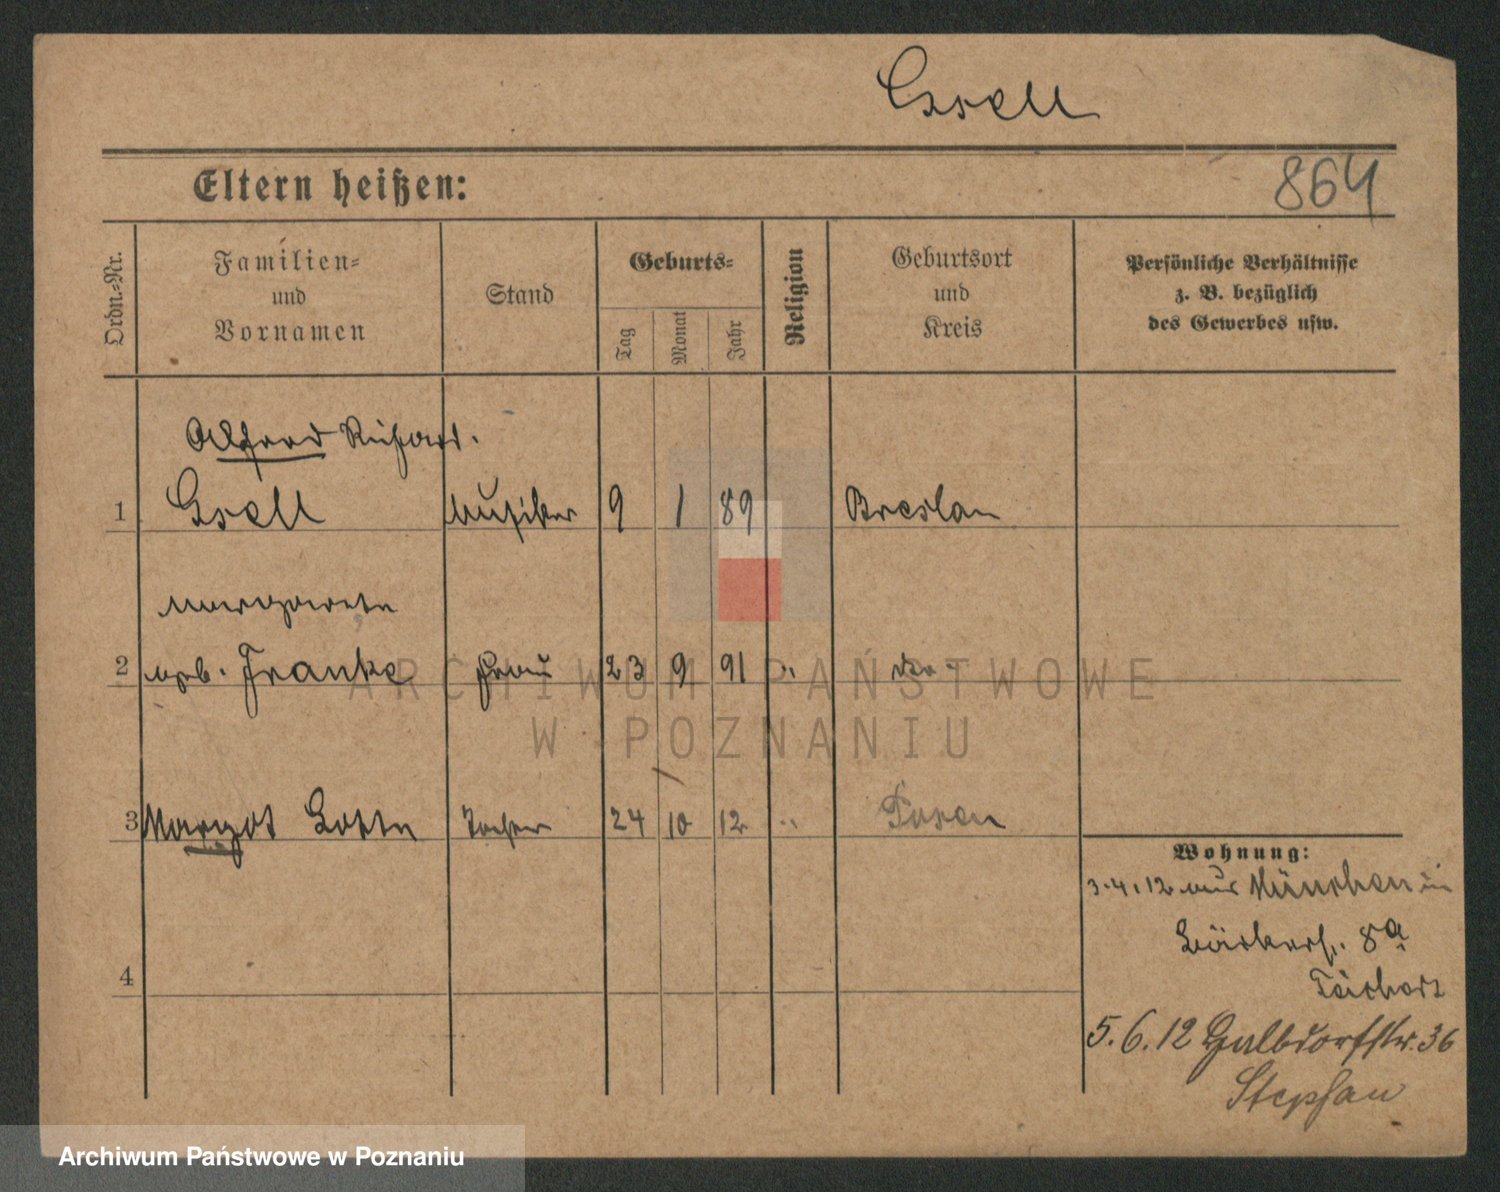 Gsell
Eltern heißen:
864
Ordn.-Nr.
Familien-
und
Vornamen
Stand
Geburts-
Tag
Monat
Jahr
Religion
Geburtsort
und
Kreis
Persönliche Verhältnisse
z. B. bezüglich
des Gewerbes usw.
Alfred Richard.
1 Gsell Musiker 9 1 89 Breslau
Margarete
2 geb. Franke Frau 23 9 91 " do
3 Margot Lotte Tochter 24 10 12 " Posen
4
Wohnung:
3.4.12 aus München in
Bäckerstr. 8a
5.6.12 Halbdorfstr. 36
Stephan
ARCHIWUM PAŃSTWOWE
W POZNANIU
Archiwum Państwowe w Poznaniu